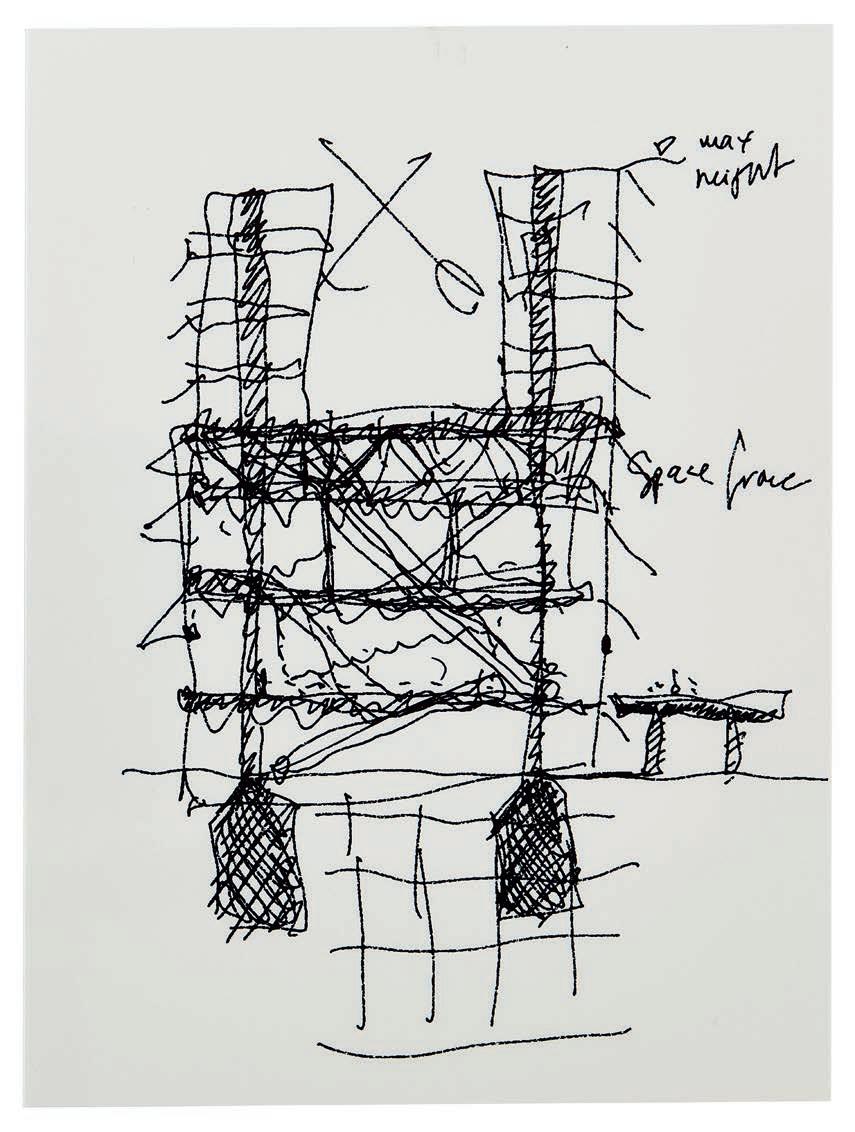 max
height
Space frame